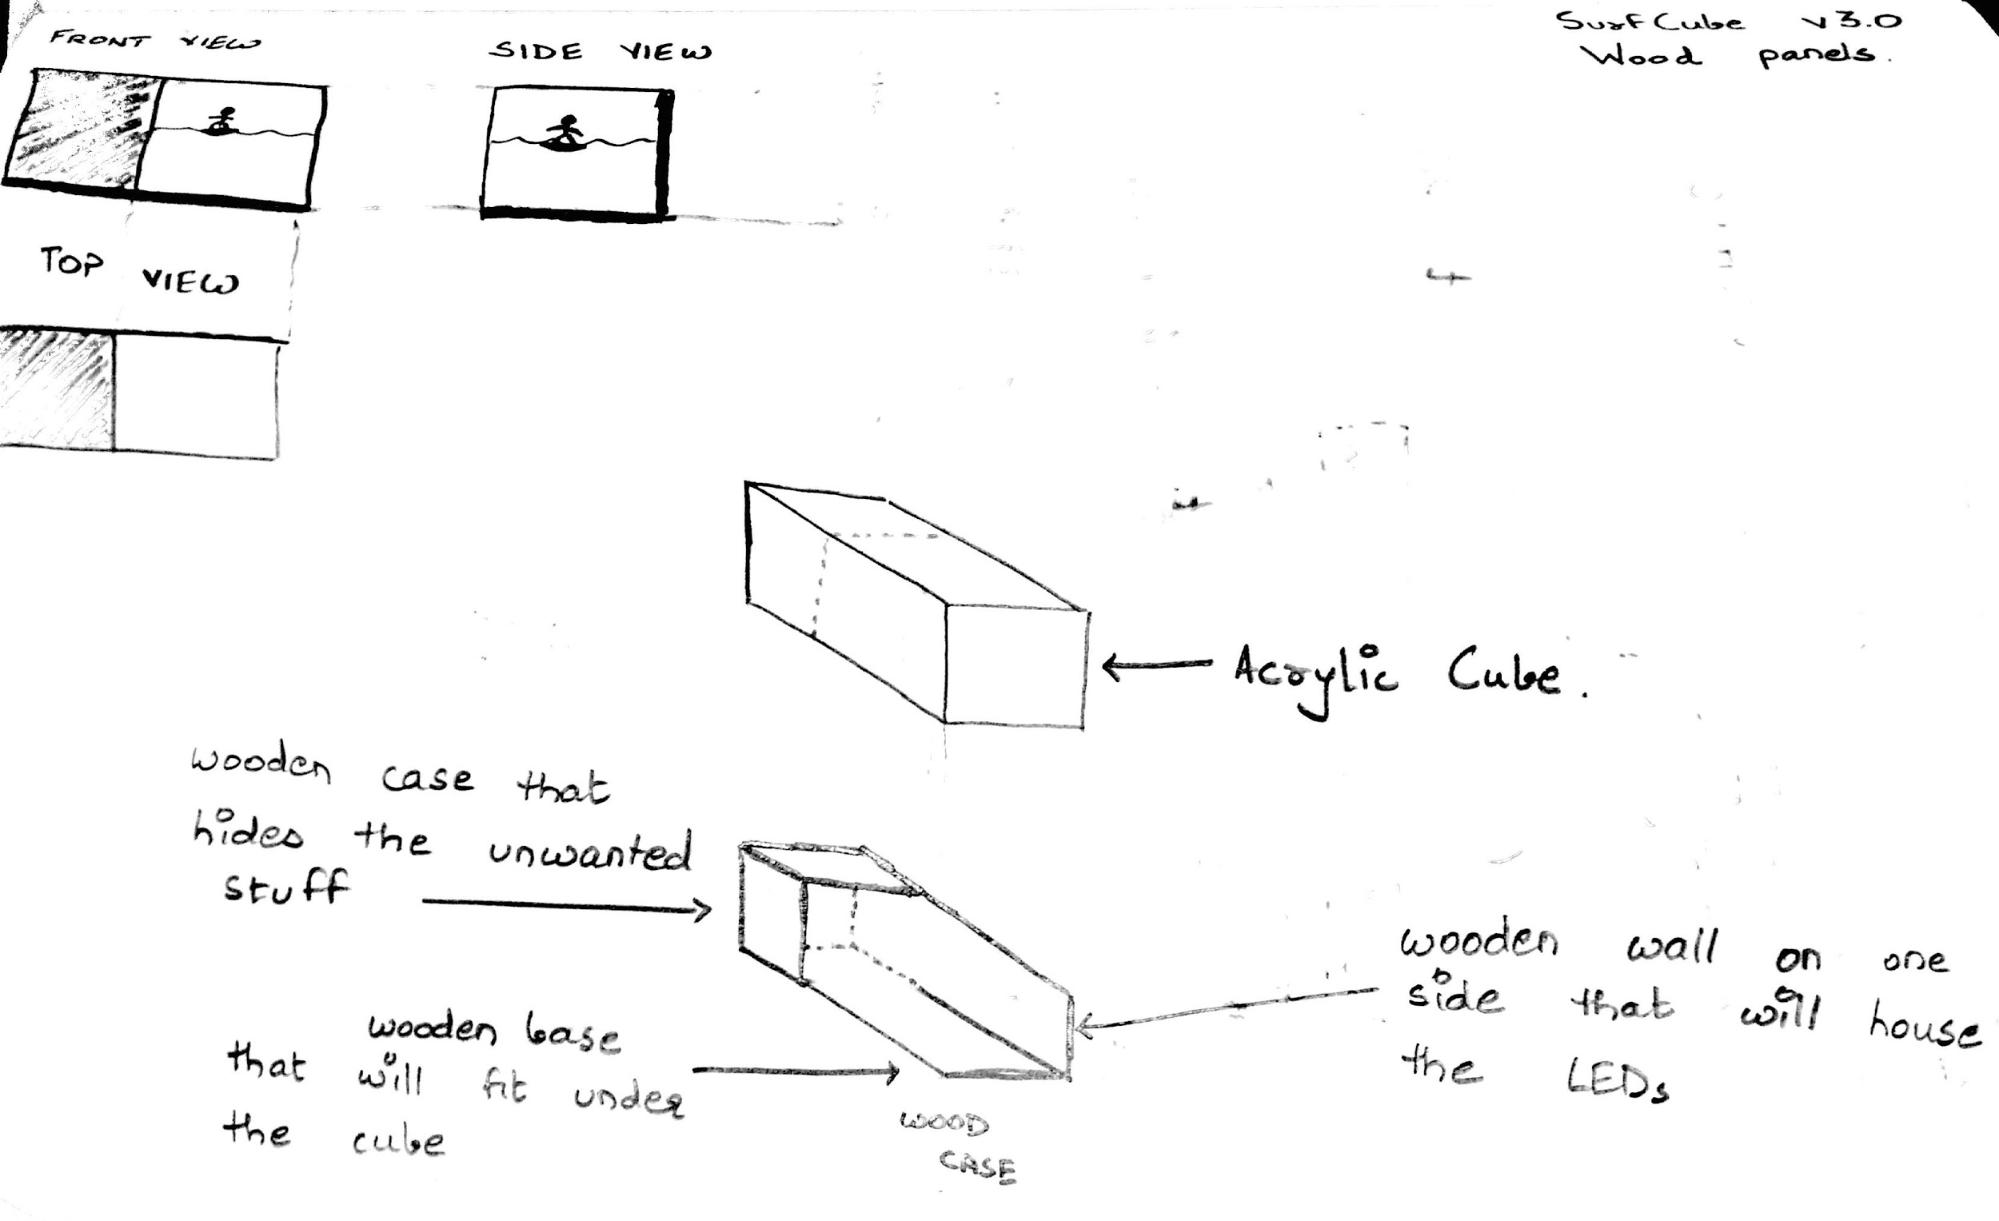 FRONT VIEW
SIDE VIEW
SurfCube v3.0
Wood panels.
TOP VIEW
Acrylic Cube.
wooden case that
hides the unwanted
stuff
wooden wall on one
side that will house
the LEDs
wooden base
that will fit under
the cube
WOOD
CASE